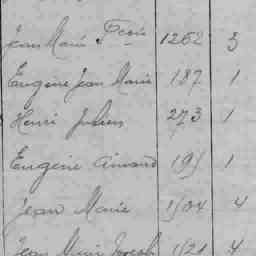 Jean Marie 1262 3
Eugène Jean Marie 187 1
Henri Julien 273 1
Eugène Amand 191 1
Jean Marie 1104 4
Jean Marie Joseph 1121 4